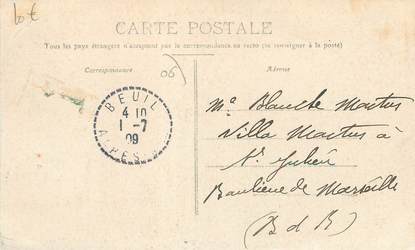 lot
CARTE POSTALE
Tous les pays étrangers n'acceptent pas la correspondance au recto (se renseigner à la poste)
Correspondance
Adresse
06
BEUIL
4 10
1 - 7
09
ALPES
Ma Blanche Martus
Villa Martus à
St Julien
Banlieue de Marseille
(B d R)